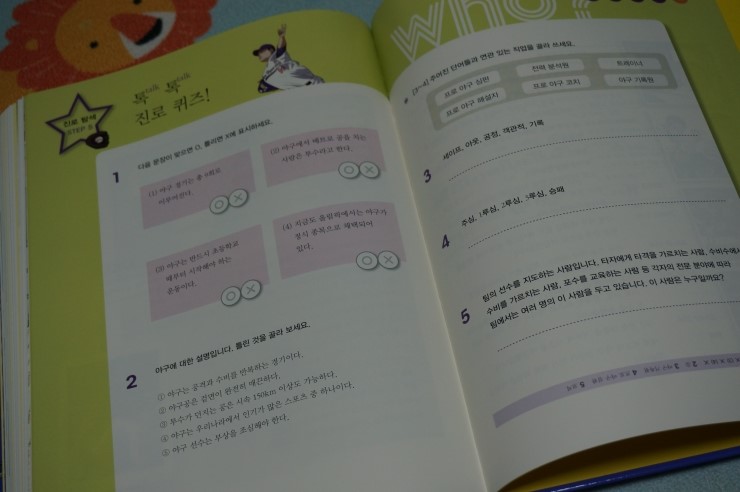 진로 탐색
STEP 3
톡 talk 톡 talk
진로 퀴즈!
1 다음 문장이 맞으면 O, 틀리면 X에 표시하세요.
(1) 야구 경기는 총 9회로
이루어진다.
O X
(2) 야구에서 배트로 공을 치는
사람은 투수라고 한다.
O X
(3) 야구는 반드시 초등학교
때부터 시작해야 하는
운동이다.
O X
(4) 지금도 올림픽에서는 야구가
정식 종목으로 채택되어
있다.
O X
2 야구에 대한 설명입니다. 틀린 것을 골라 보세요.
① 야구는 공격과 수비를 반복하는 경기이다.
② 야구공은 겉면이 완전히 매끈하다.
③ 투수가 던지는 공은 시속 150km 이상도 가능하다.
④ 야구는 우리나라에서 인기가 많은 스포츠 중 하나이다.
⑤ 야구 선수는 부상을 조심해야 한다.
who?
[3~4] 주어진 단어들과 연관 있는 직업을 골라 쓰세요.
프로 야구 심판 전력 분석원 트레이너
프로 야구 해설자 프로 야구 코치 야구 기록원
3 세이프, 아웃, 공정, 객관적, 기록
4 주심, 1루심, 2루심, 3루심, 승패
5 팀의 선수를 지도하는 사람입니다. 타자에게 타격을 가르치는 사람, 수비수에게
수비를 가르치는 사람, 포수를 교육하는 사람 등 각자의 전문 분야에 따라
팀에서는 여러 명의 이 사람을 두고 있습니다. 이 사람은 누구일까요?